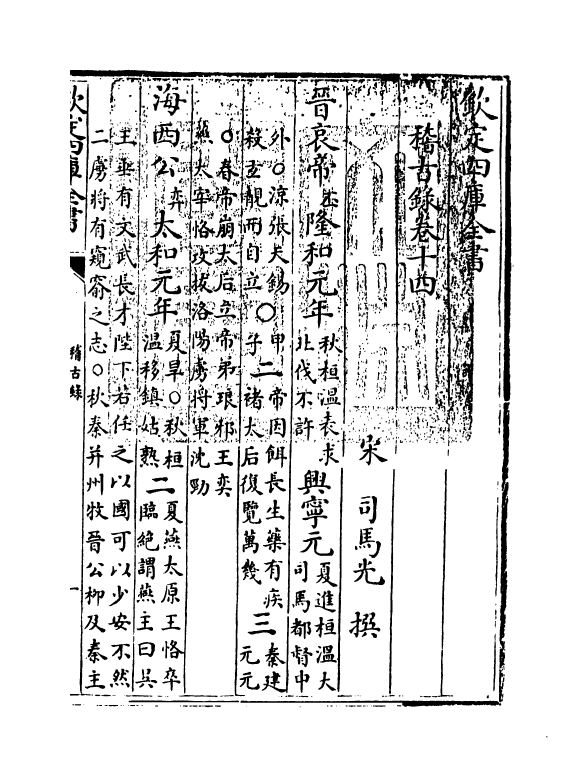 欽定四庫全書
稽古錄卷十四
宋 司馬光 撰
晉哀帝丕隆和元年秋桓溫表求北伐不許興寧元夏進桓溫大司馬都督中
外○涼張天錫殺玄靚而自立○甲子二帝因餌長生藥有疾褚太后復覽萬幾三秦建元元
○春帝崩太后立帝弟琅邪王奕燕太宰恪攻拔洛陽虜將軍沈勁
海西公奕太和元年夏旱○秋桓溫移鎮姑熟二夏燕太原王恪卒臨絕謂燕主曰吳
王垂有文武長才陛下若任之以國可以少安不然
二虜將有窺窬之志○秋秦并州牧晉公柳及秦主
欽定四庫全書
稽古錄
一